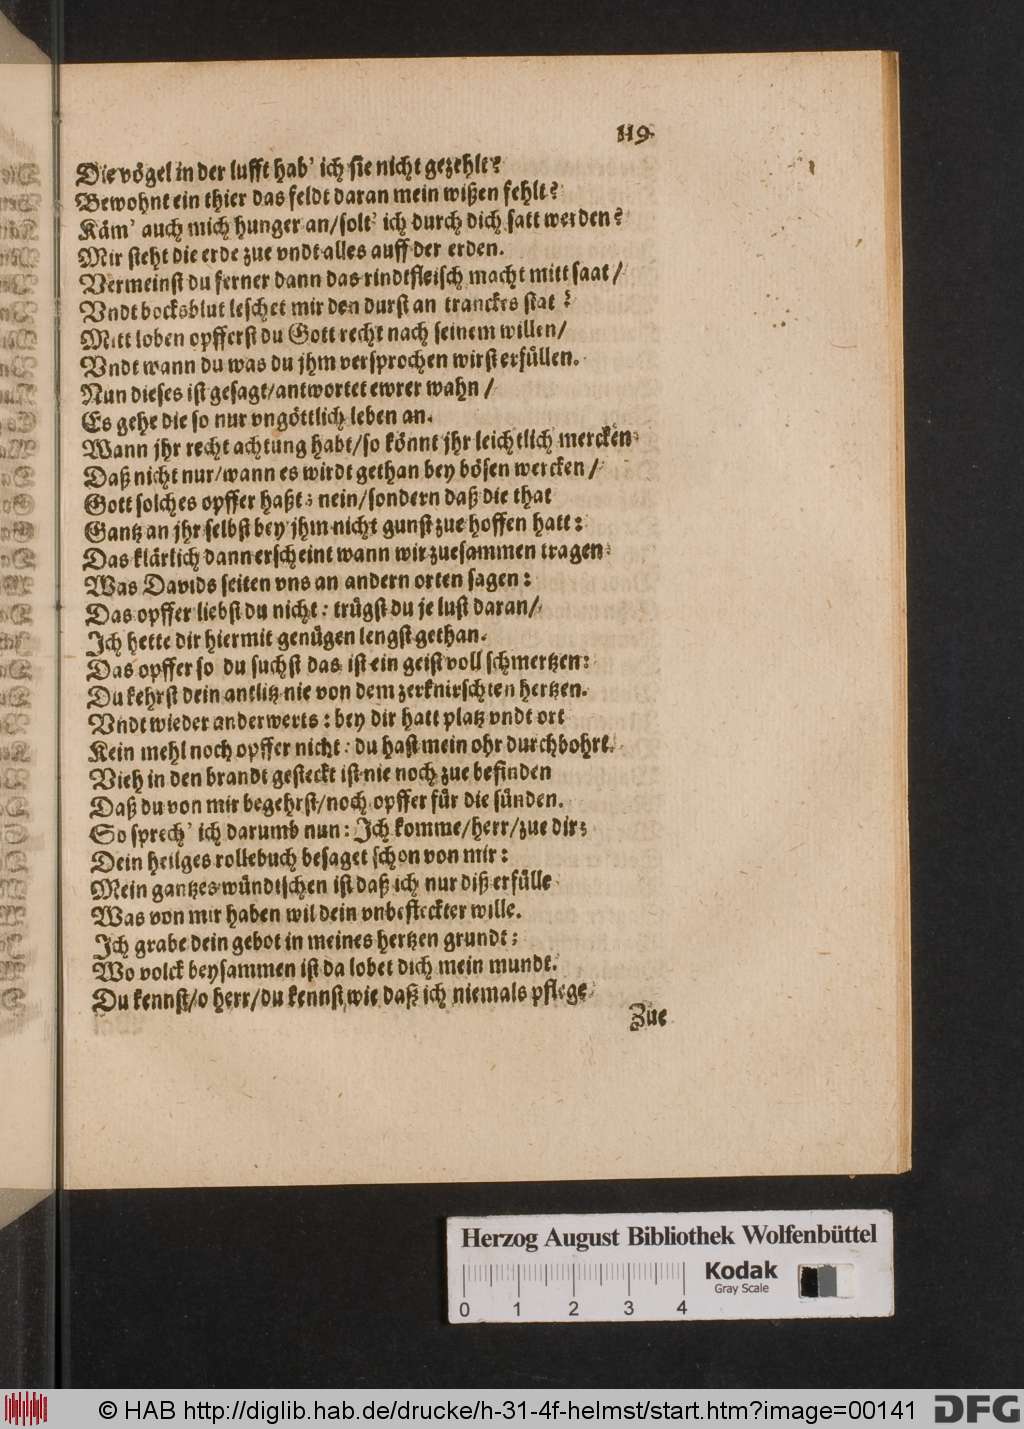 119.
Die vögel in der lufft hab' ich sie nicht gezehlt?
Bewohnt ein thier das feldt daran mein wißen fehlt?
Käm' auch mich hunger an/solt' ich durch dich satt werden?
Mir steht die erde zue vndt alles auff der erden.
Vermeinst du ferner dann das rindtfleisch macht mitt saat/
Vndt bocksblut leschet mir den durst an tranckes stat?
Mitt loben opfferst du Gott recht nach seinem willen/
Vndt wann du was du jhm versprochen wirst erfüllen.
Nun dieses ist gesagt/antwortet ewrer wahn/
Es gehe die so nur vngöttlich leben an.
Wann jhr recht achtung habt/so könnt jhr leichtlich mercken
Daß nicht nur/wann es wirdt gethan bey bösen wercken/
Gott solches opffer haßt; nein/sondern daß die that
Gantz an jhr selbst bey jhm nicht gunst zue hoffen hatt:
Das klärlich dann erscheint wann wir zuesammen tragen
Was Davids seiten vns an andern orten sagen:
Das opffer liebst du nicht: trügst du je lust daran/
Ich hette dir hiermit genügen lengst gethan.
Das opffer so du suchst das ist ein geist voll schmertzen:
Du kehrst dein antlitz nie von dem zerknirschten hertzen.
Vndt wieder anderwerts: bey dir hatt platz vndt ort
Kein mehl noch opffer nicht: du hast mein ohr durchbohrt.
Vieh in den brandt gesteckt ist nie noch zue befinden
Daß du von mir begehrst/noch opffer für die sünden.
So sprech' ich darumb nun: Ich komme/herr/zue dir;
Dein heilges rollebuch besaget schon von mir:
Mein gantzes wündtschen ist daß ich nur diß erfülle
Was von mir haben wil dein vnbesteckter wille.
Ich grabe dein gebot in meines hertzen grundt;
Wo volck beysammen ist da lobet dich mein mundt.
Du kennst/o herr/du kennst wie daß ich niemals pflege
Zue
Herzog August Bibliothek Wolfenbüttel
Kodak
Gray Scale
0 1 2 3 4
© HAB http://diglib.hab.de/drucke/h-31-4f-helmst/start.htm?image=00141
DFG